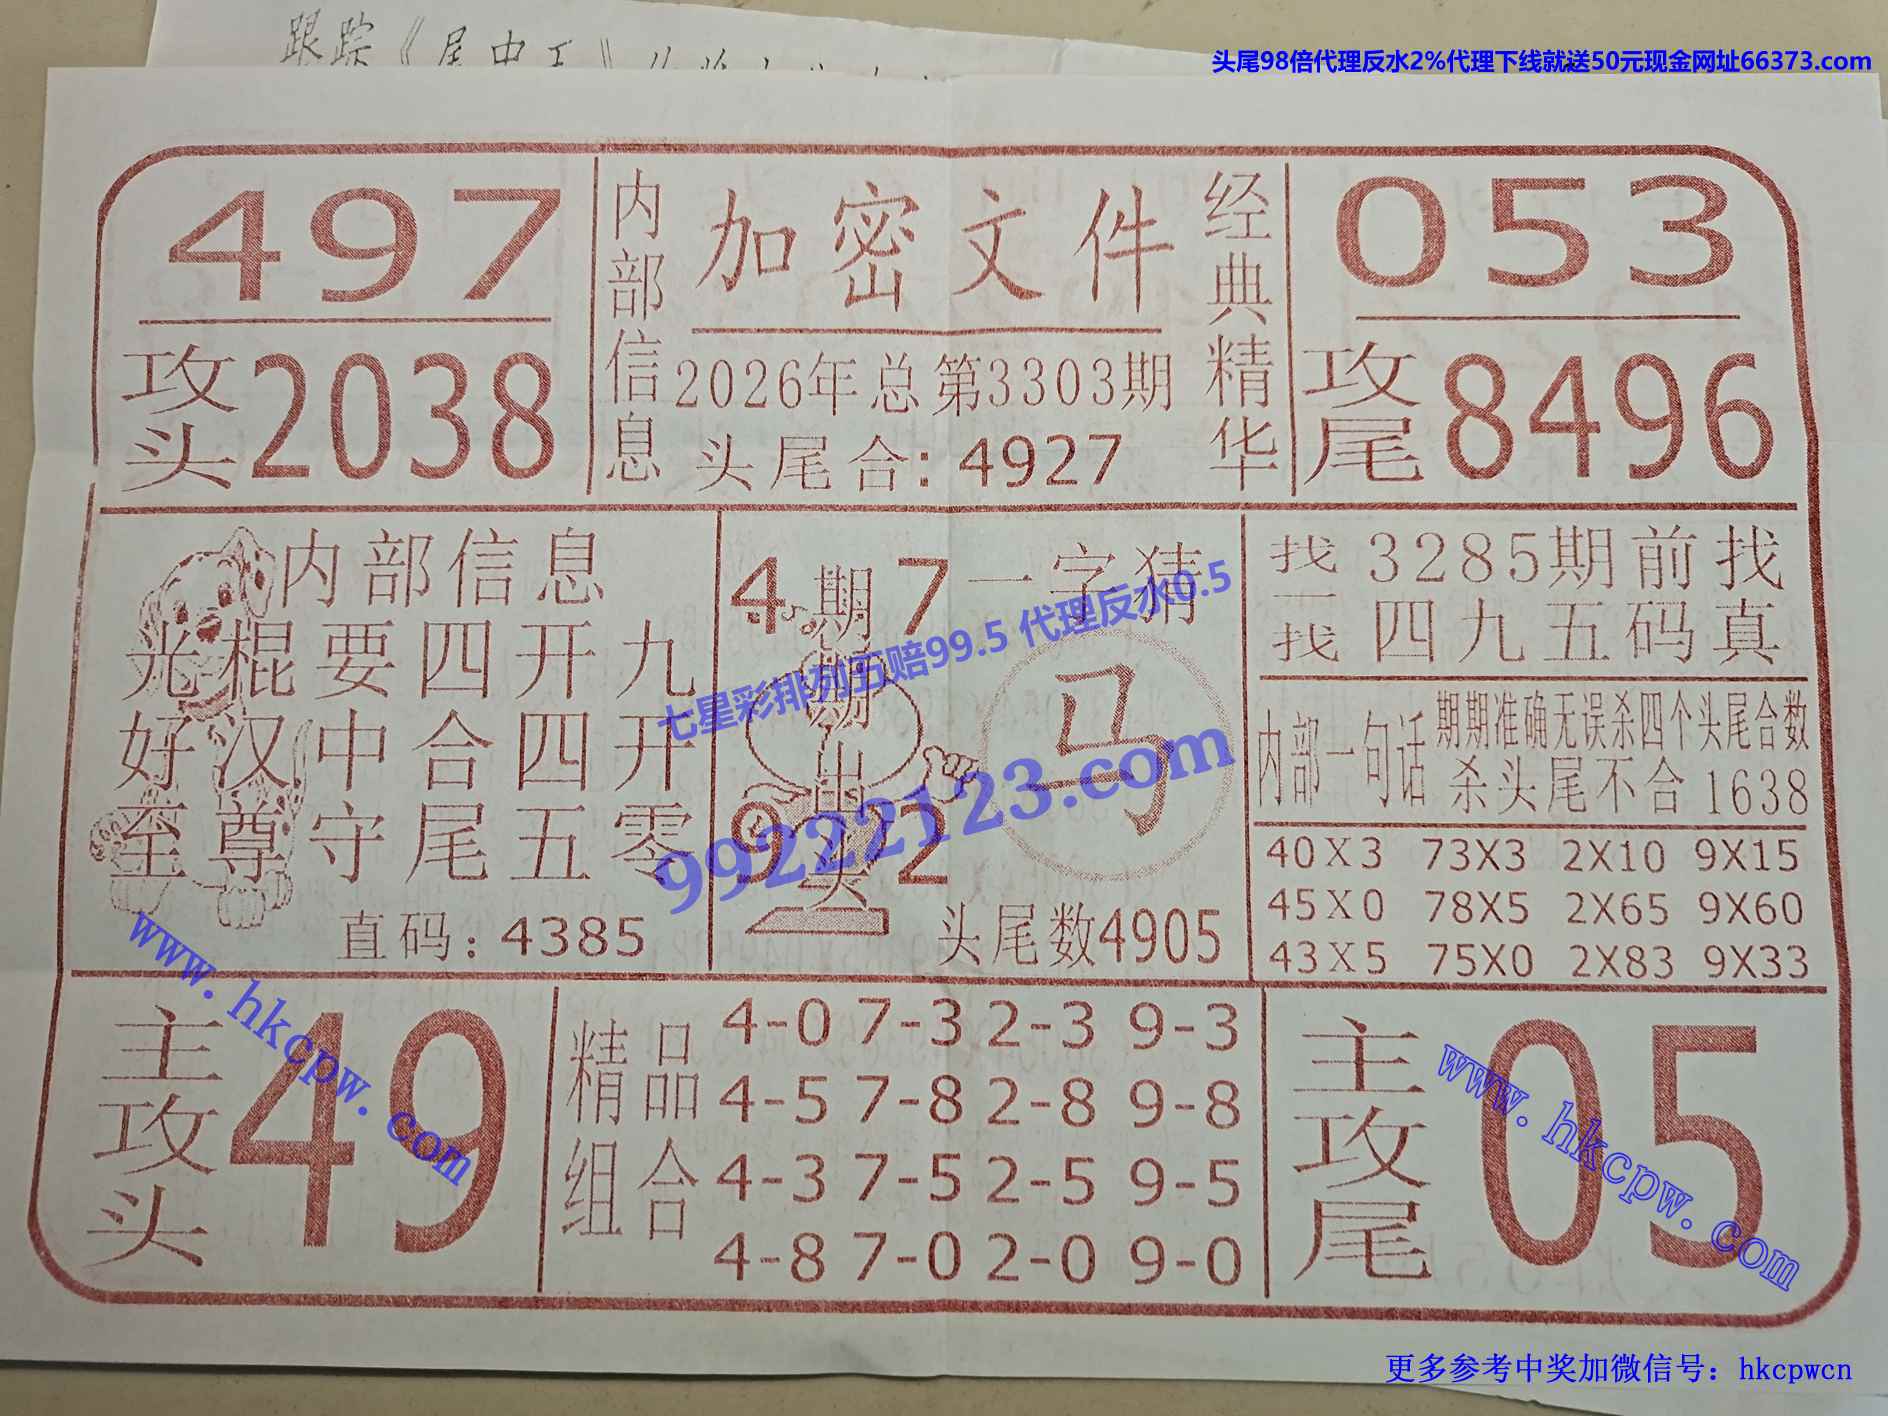 跟踪《尾中王》
头尾98倍代理反水2%代理下线就送50元现金网址66373.com
497
攻头2038
内部信息
加密文件
2026年总第3303期
头尾合:4927
经典精华
053
攻尾8496
内部信息
光棍要四开九
好汉中合四开
至尊守尾五零
直码:4385
4 7
9 2
期期出头
一字猜
马
头尾数4905
找一找
3285期前找
四九五码真
内部一句话
期期准确无误杀四个头尾合数
杀头尾不合1638
40X3 73X3 2X10 9X15
45X0 78X5 2X65 9X60
43X5 75X0 2X83 9X33
主攻头
49
精品组合
4-0 7-3 2-3 9-3
4-5 7-8 2-8 9-8
4-3 7-5 2-5 9-5
4-8 7-0 2-0 9-0
主攻尾
05
七星彩排列五赔99.5 代理反水0.5
99222123.com
www.hkcpw.com
www.hkcpw.com
更多参考中奖加微信号：hkcpwcn